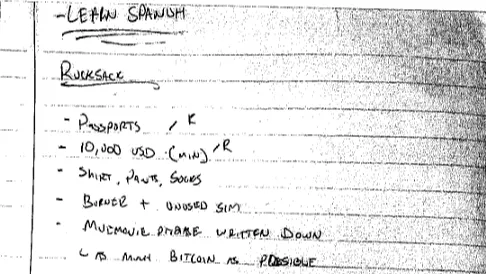 -LEARN SPANISH
RUCKSACK
- PASSPORTS / R
- 10,000 USD (MIN) / R
- SHIRT, PANTS, SOCKS
- BURNER + UNUSED SIM
- MNEMONIC PHRASE WRITTEN DOWN
AS MUCH BITCOIN AS POSSIBLE